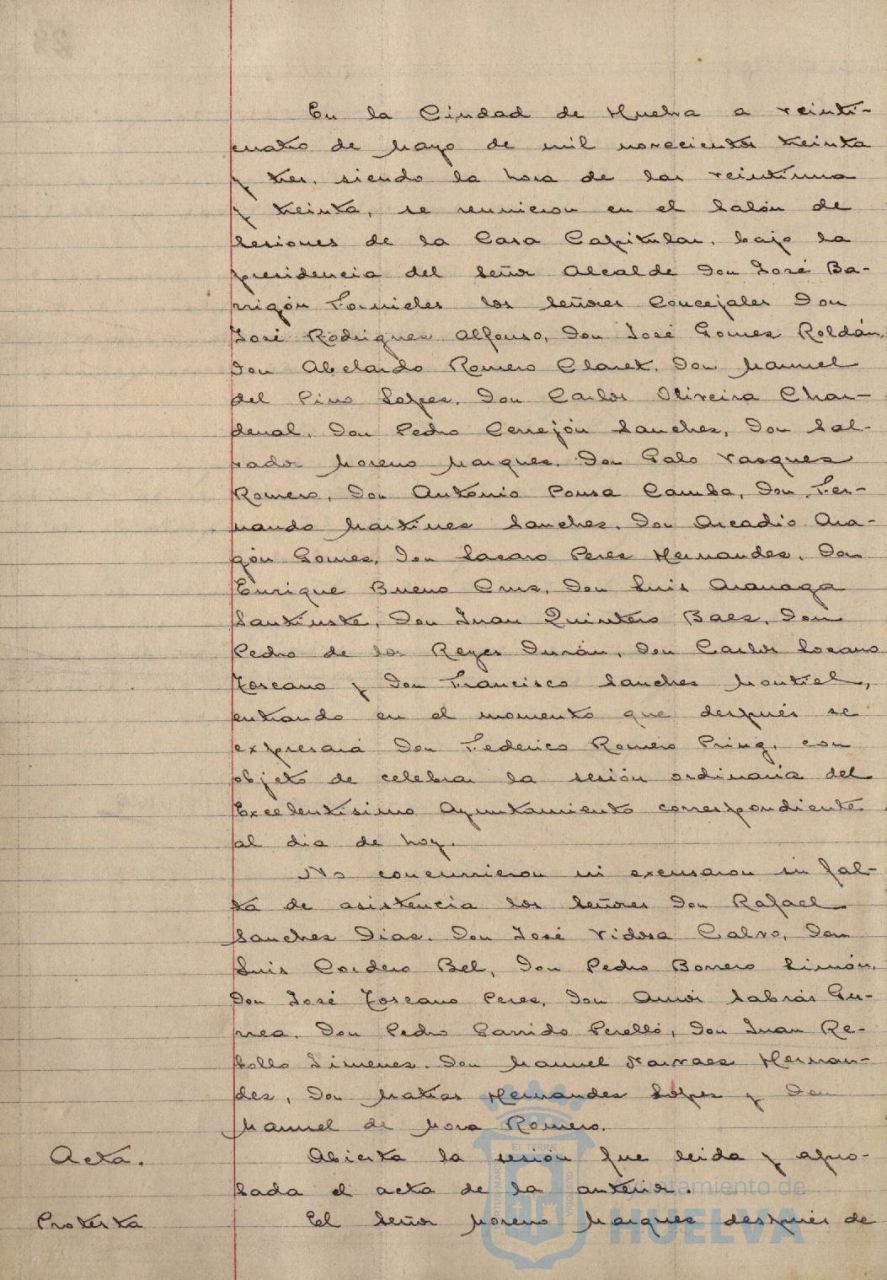 En la Ciudad de Huelva a veinti-
cuatro de Mayo de mil novecientos treinta
y tres, siendo la hora de las veintiuna
y treinta, se reunieron en el Salón de
Sesiones de la Casa Capitular, bajo la
presidencia del Señor Alcalde Don José Ba-
rrigón Fornieles los Señores Concejales Don
José Rodrigues Alfonso, Don José Gomes Roldán,
Don Abelardo Romero Claret, Don Manuel
del Pino Lopes, Don Carlos Oliveira Chan-
denal, Don Pedro Cerrejón Sanches, Don Sal-
vador Moreno Marques, Don Galo Vasques
Romero, Don Antonio Pousa Camba, Don Fer-
nando Martines Sanches, Don Arcadio Ara-
gón Gomes, Don Lasaro Peres Hernandes, Don
Enrique Bueno Crus, Don Luis Aranaga
Santiuste, Don Juan Quintero Baes, Don
Pedro de los Reyes Durán, Don Carlos Losano
Toscano y Don Francisco Sanches Montiel,
entrando en el momento que después se
expresará Don Federico Romero Pring, con
objeto de celebrar la sesión ordinaria del
Excelentísimo Ayuntamiento correspondiente
al dia de hoy.
No concurrieron ni excusaron su fal-
ta de asistencia los Señores Don Rafael
Sanches Dias, Don José Vidosa Calvo, Don
Luis Cordero Bel, Don Pedro Borrero Limón,
Don José Toscano Peres, Don Amós Sabrás Gu-
rrea, Don Pedro Garrido Perelló, Don Juan Re-
bollo Jimenes, Don Manuel Narvaes Hernan-
des, Don Matías Hernandes Lopes y Don
Manuel de Mora Romero.
Acta. Abierta la sesión fue leida y apro-
bada el acta de la anterior.
Protesta El Señor Moreno Marques después de
Ayuntamiento de
HUELVA